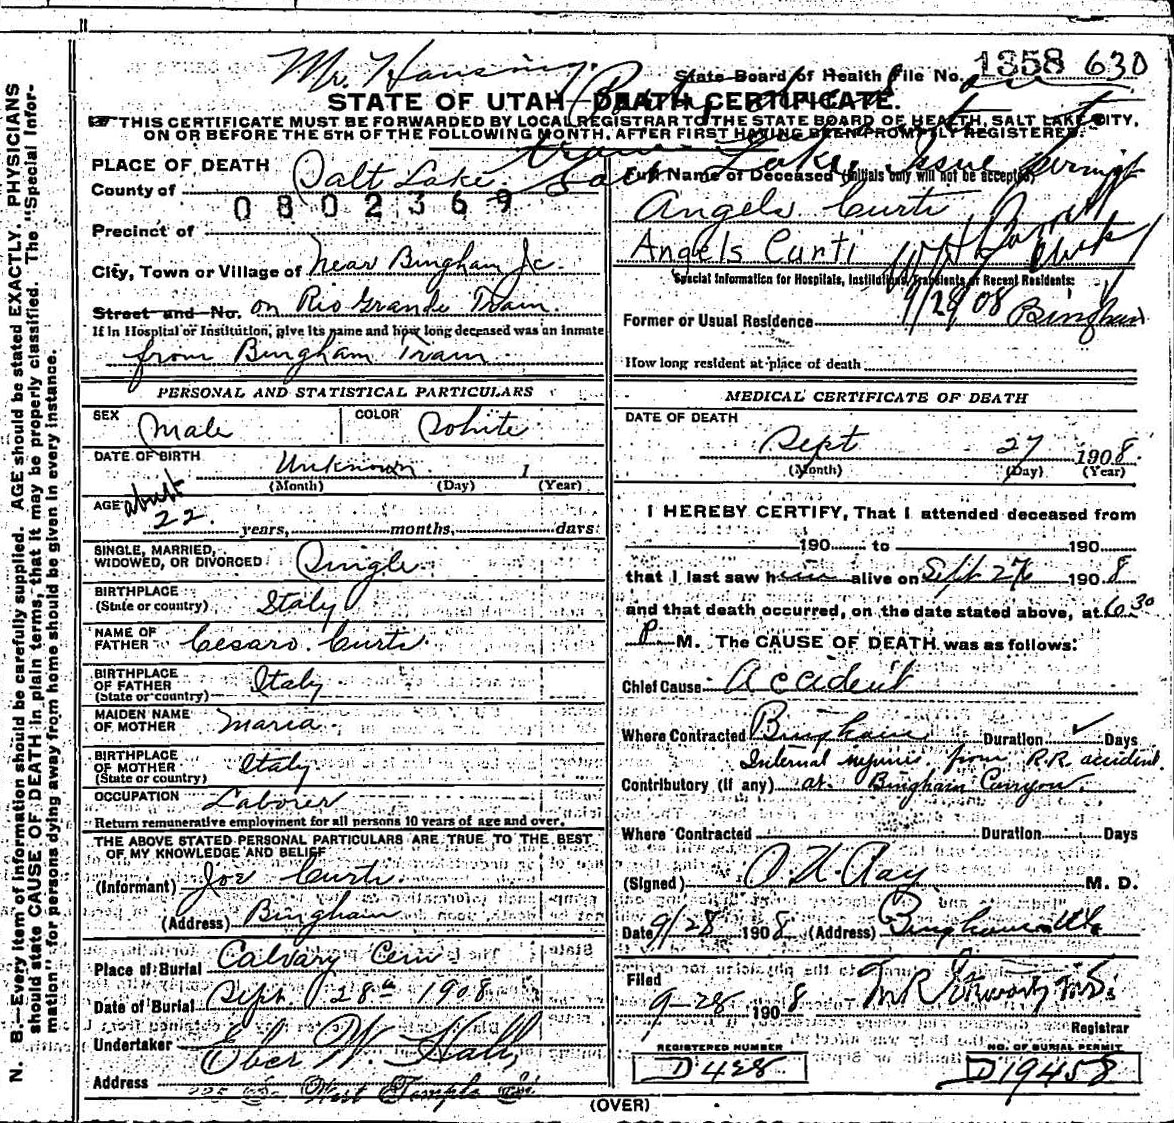 Mr. Hansing.
State Board of Health File No. 1358 630
STATE OF UTAH—DEATH CERTIFICATE.
THIS CERTIFICATE MUST BE FORWARDED BY LOCAL REGISTRAR TO THE STATE BOARD OF HEALTH, SALT LAKE CITY,
ON OR BEFORE THE 5TH OF THE FOLLOWING MONTH, AFTER FIRST HAVING BEEN PROMPTLY REGISTERED.
PLACE OF DEATH
County of Salt Lake
0802369
Precinct of
City, Town or Village of Near Bingham Jc.
Street and No. on Rio Grande Train
If in Hospital or Institution, give its name and how long deceased was an inmate
from Bingham Train
Full Name of Deceased (Initials only will not be accepted)
Angelo Curti
Angels Curti
Special Information for Hospitals, Institutions, Transients or Recent Residents:
9/28 08
Former or Usual Residence Bingham
How long resident at place of death
PERSONAL AND STATISTICAL PARTICULARS
SEX Male COLOR White
DATE OF BIRTH Unknown 1
(Month) (Day) (Year)
AGE about
22 years, months, days
SINGLE, MARRIED,
WIDOWED, OR DIVORCED Single
BIRTHPLACE
(State or country) Italy
NAME OF
FATHER Cesaro Curti
BIRTHPLACE
OF FATHER
(State or country) Italy
MAIDEN NAME
OF MOTHER Maria
BIRTHPLACE
OF MOTHER
(State or country) Italy
OCCUPATION Laborer
Return remunerative employment for all persons 10 years of age and over.
THE ABOVE STATED PERSONAL PARTICULARS ARE TRUE TO THE BEST
OF MY KNOWLEDGE AND BELIEF
(Informant) Joe Curti
(Address) Bingham
Place of Burial Calvary Cem
Date of Burial Sept 28th 1908
Undertaker Eber W. Hall
Address West Temple St.
MEDICAL CERTIFICATE OF DEATH
DATE OF DEATH
Sept 27 1908
(Month) (Day) (Year)
I HEREBY CERTIFY, That I attended deceased from
190 to 190
that I last saw him alive on Sept 27 1908
and that death occurred, on the date stated above, at 6 30
P M. The CAUSE OF DEATH was as follows:
Chief Cause Accident
Where Contracted Bingham Duration ✓ Days
Internal injuries from R.R. accident
Contributory (if any) at Bingham Canyon
Where Contracted Duration Days
(Signed) M. D.
Date 9/28 1908 (Address) Bingham Utah
Filed
9-28 1908
Registrar
REGISTERED NUMBER
D 428
NO. OF BURIAL PERMIT
D19458
(OVER)
N. B.—Every item of information should be carefully supplied. AGE should be stated EXACTLY. PHYSICIANS
should state CAUSE OF DEATH in plain terms, that it may be properly classified. The "Special Infor-
mation" for persons dying away from home should be given in every instance.